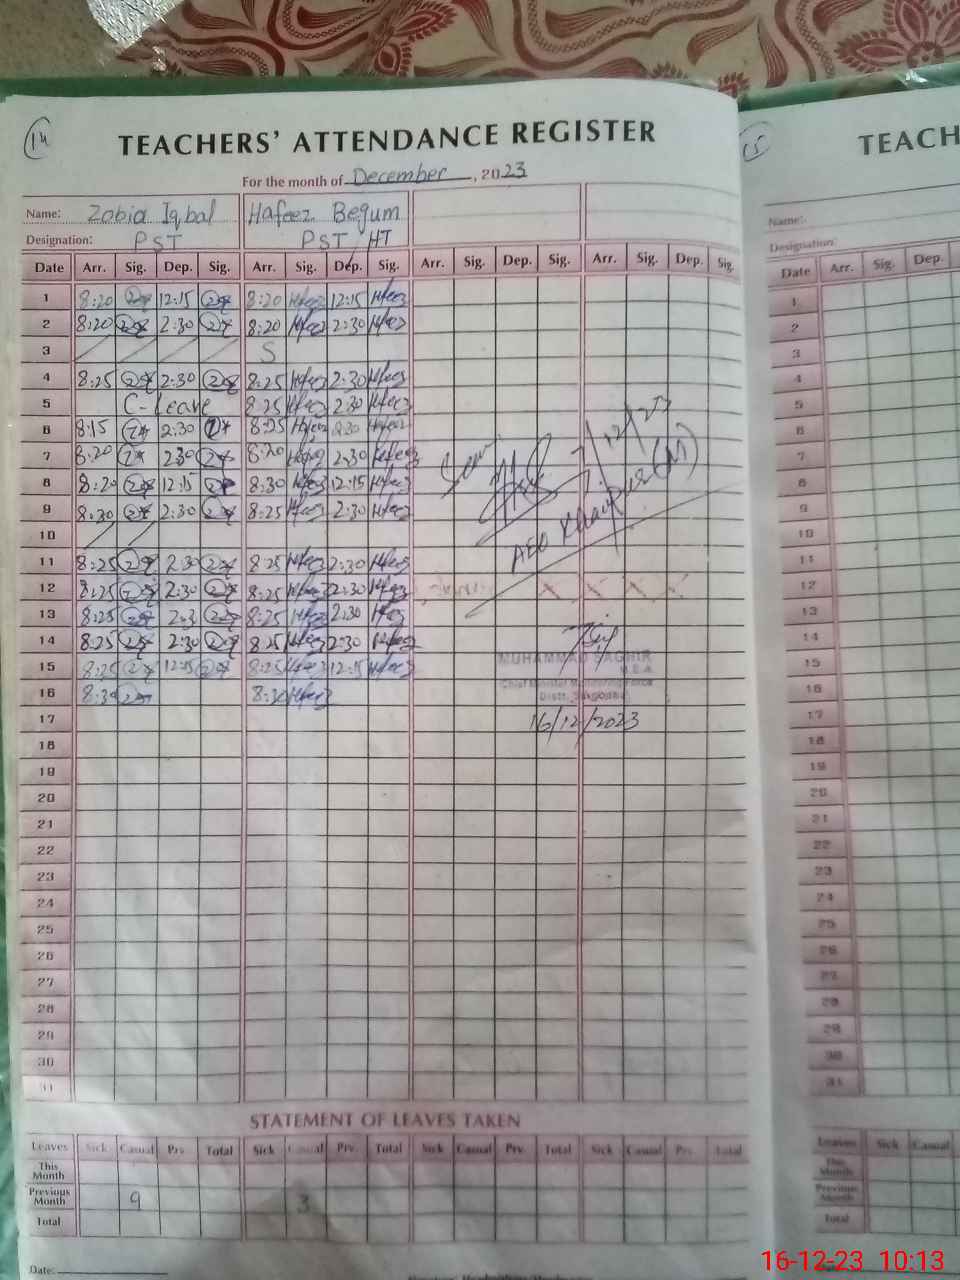 14
TEACHERS' ATTENDANCE REGISTER
For the month of December, 2023
Name: Zobia Iqbal Hafeez Begum
Designation: PST PST/HT
Date Arr. Sig. Dep. Sig. Arr. Sig. Dep. Sig. Arr. Sig. Dep. Sig. Arr. Sig. Dep. Sig.
1 8:20 12:15 8:20 Hfeez 12:15 Hfeez
2 8:20 2:30 8:20 Hfeez 2:30 Hfeez
3 S
4 8:25 2:30 8:25 Hfeez 2:30 Hfeez
5 C-Leave 8:25 Hfeez 2:30 Hfeez
6 8:15 2:30 8:25 Hfeez 2:30 Hfeez
7 8:20 2:30 8:20 Hfeez 2:30 Hfeez
8 8:20 12:15 8:30 Hfeez 12:15 Hfeez
9 8:30 2:30 8:25 Hfeez 2:30 Hfeez
10
11 8:25 2:30 8:25 Hfeez 2:30 Hfeez
12 8:25 2:30 8:25 Hfeez 2:30 Hfeez
13 8:25 2:3 8:25 Hfeez 2:30 Hfeez
14 8:25 2:30 8:25 Hfeez 2:30 Hfeez
15 8:25 12:15 8:25 Hfeez 12:15 Hfeez
16 8:30 8:30 Hfeez
17
18
19
20
21
22
23
24
25
26
27
28
29
30
31
Seen
7/12/23
AEO Khanpur (M)
MUHAMMAD SAGHIR
Chief Minister Monitoring Force
Distt. Sargodha
16/12/2023
STATEMENT OF LEAVES TAKEN
Leaves Sick Casual Prv. Total Sick Casual Prv. Total Sick Casual Prv. Total Sick Casual Prv. Total
This Month
Previous Month 9 3
Total
Date:
15
TEACH
Name:
Designation:
Date Arr. Sig. Dep.
1
2
3
4
5
6
7
8
9
10
11
12
13
14
15
16
17
18
19
20
21
22
23
24
25
26
27
28
29
30
31
Leaves Sick Casual
This Month
Previous Month
Total
16-12-23 10:13